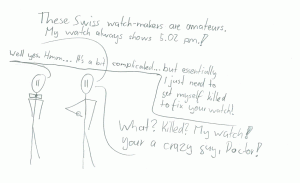 These Swiss watch-makers are amateurs.
My watch always shows 5.02 pm.!
Well yea, Hmm... It's a bit complicated... but essentially
I just need to
get myself killed
to fix your watch!
What? Killed? My watch?
your a crazy guy, Doctor!